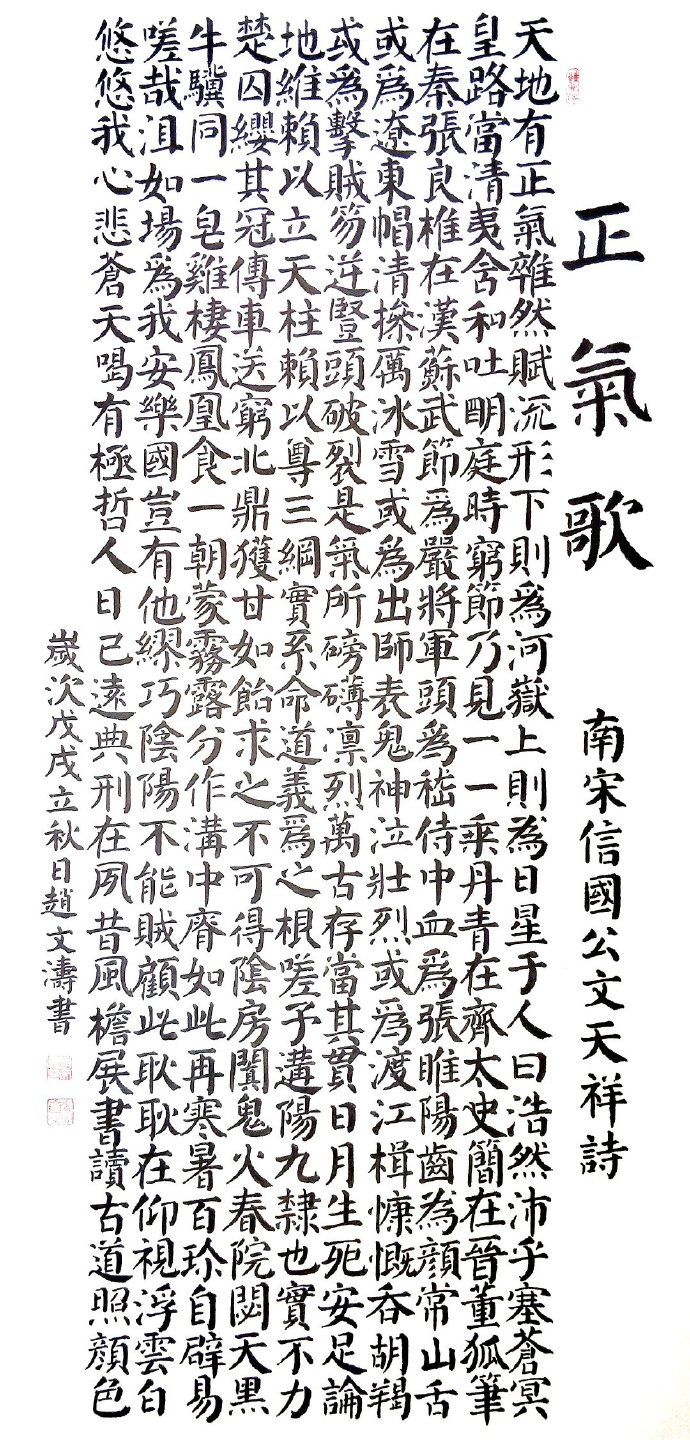 正氣歌
南宋信國公文天祥詩
天地有正氣雜然賦流形下則爲河嶽上則為日星于人曰浩然沛乎塞蒼冥
皇路當清夷含和吐明庭時窮節乃見一一垂丹青在齊太史簡在晉董狐筆
在秦張良椎在漢蘇武節爲嚴將軍頭爲嵇侍中血爲張睢陽齒為顏常山舌
或爲遼東帽清操厲冰雪或爲出師表鬼神泣壯烈或爲渡江楫慷慨吞胡羯
或爲擊賊笏逆豎頭破裂是氣所磅礡凛烈萬古存當其貫日月生死安足論
地維賴以立天柱賴以尊三綱實系命道義爲之根嗟予遘陽九隸也實不力
楚囚纓其冠傳車送窮北鼎獲甘如飴求之不可得陰房闃鬼火春院閟天黑
牛驥同一皂雞棲鳳凰食一朝蒙霧露分作溝中瘠如此再寒暑百沴自辟易
嗟哉沮如場爲我安樂國豈有他繆巧陰陽不能賊顧此耿耿在仰視浮雲白
悠悠我心悲蒼天喝有極哲人日已遠典刑在夙昔風檐展書讀古道照顏色
歲次戊戌立秋日趙文濤書